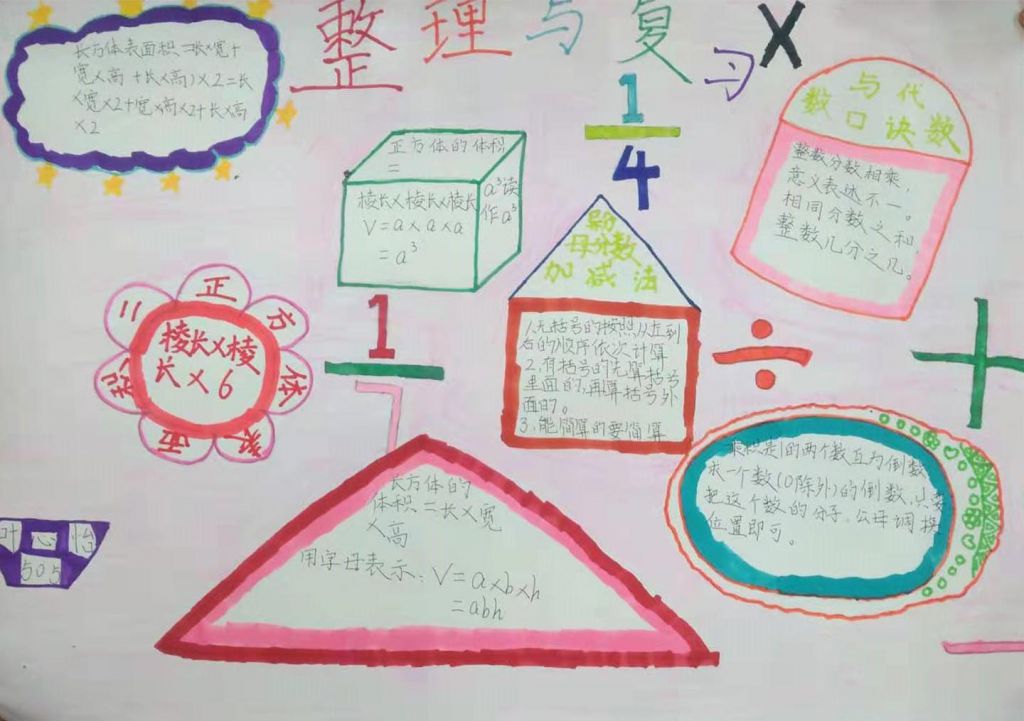 整理与复习
×
长方体表面积=(长×宽+
宽×高+长×高)×2=长
×宽×2+宽×高×2+长×高
×2
正方体的体积
=
棱长×棱长×棱长
V=a×a×a
=a³
a³读
作a³
1
4
数与代
数口诀
整数分数相乘,
意义表述不一。
相同分数之和,
整数几分之几。
异分
母分数
加减法
1、无括号的按照从左到
右的顺序依次计算
2、有括号的先算括号
里面的,再算括号外
面的。
3、能简算的要简算
÷
+
正方体表面积=
棱长×棱
长×6
1
7
乘积是1的两个数互为倒数
求一个数(0除外)的倒数,只要
把这个数的分子、分母调换
位置即可。
长方体的
体积=长×宽
×高
用字母表示:V=a×b×h
=abh
叶心怡
505